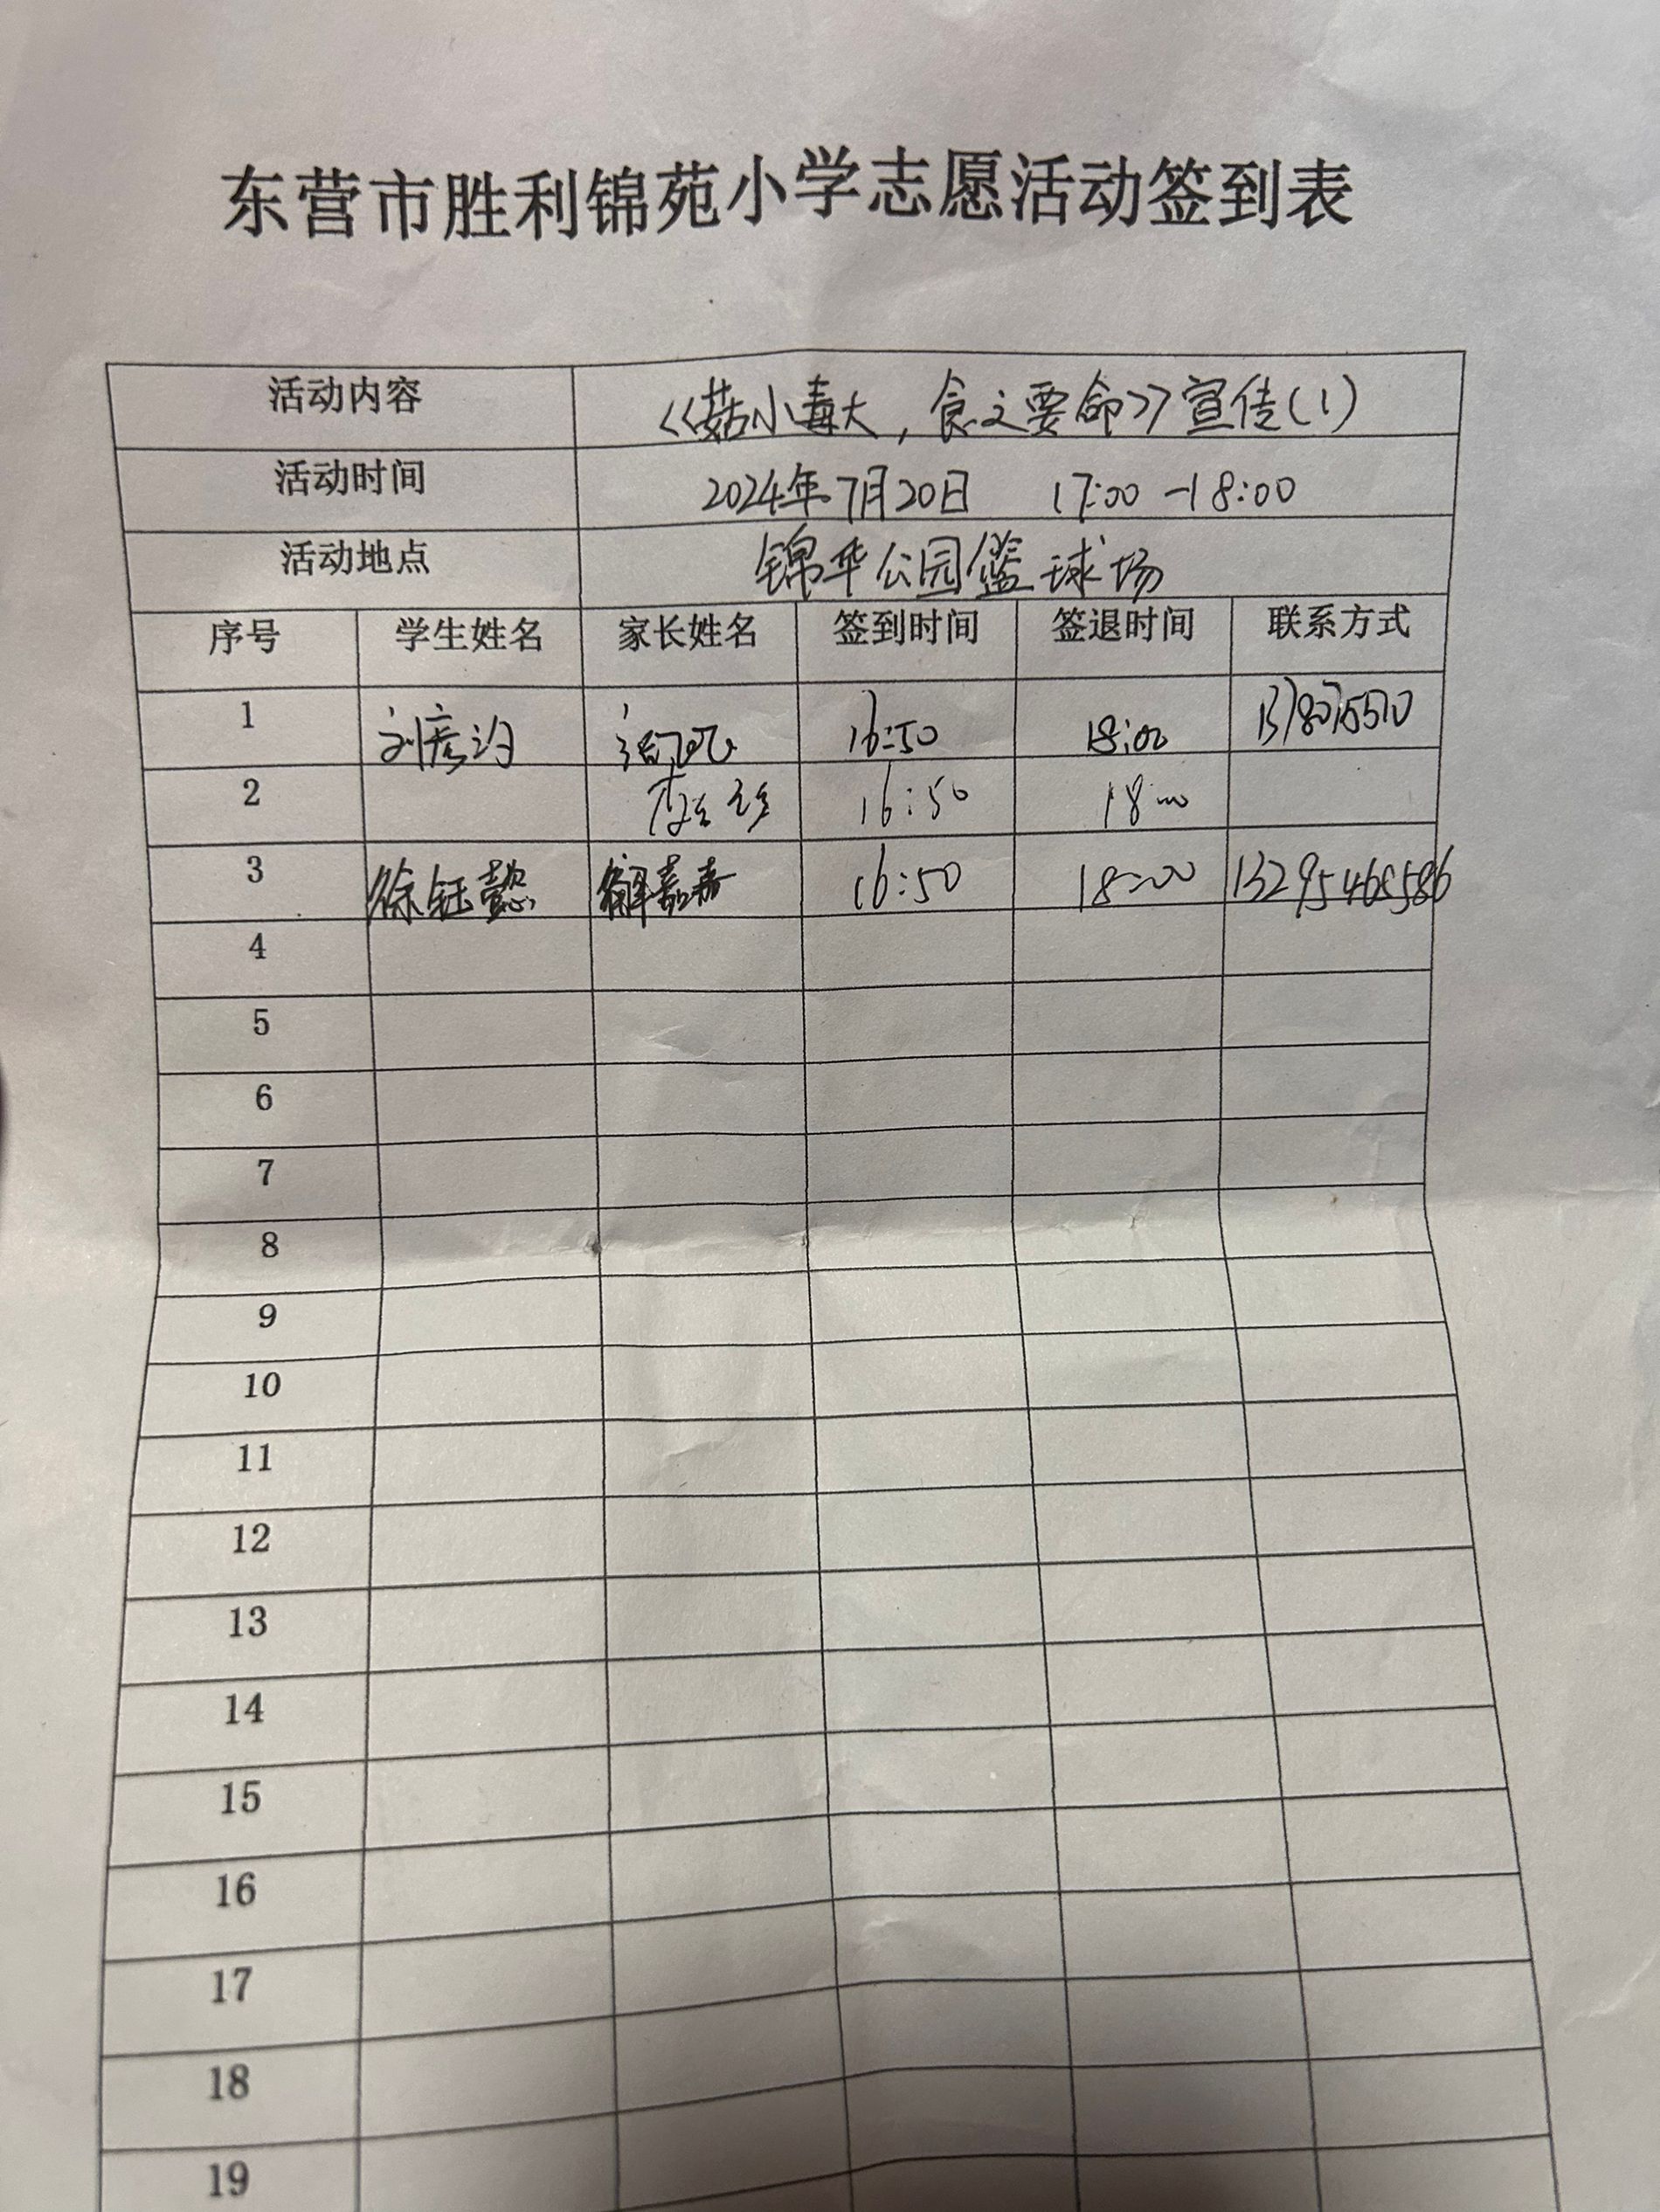 东营市胜利锦苑小学志愿活动签到表
活动内容 《菇小毒大，食之要命》宣传(1)
活动时间 2024年7月20日 17:00-18:00
活动地点 锦华公园篮球场
序号 学生姓名 家长姓名 签到时间 签退时间 联系方式
1 16:50 18:00
2 16:50 18:00
3 徐钰懿 解嘉嘉 16:50 18:00 13295468586
4
5
6
7
8
9
10
11
12
13
14
15
16
17
18
19